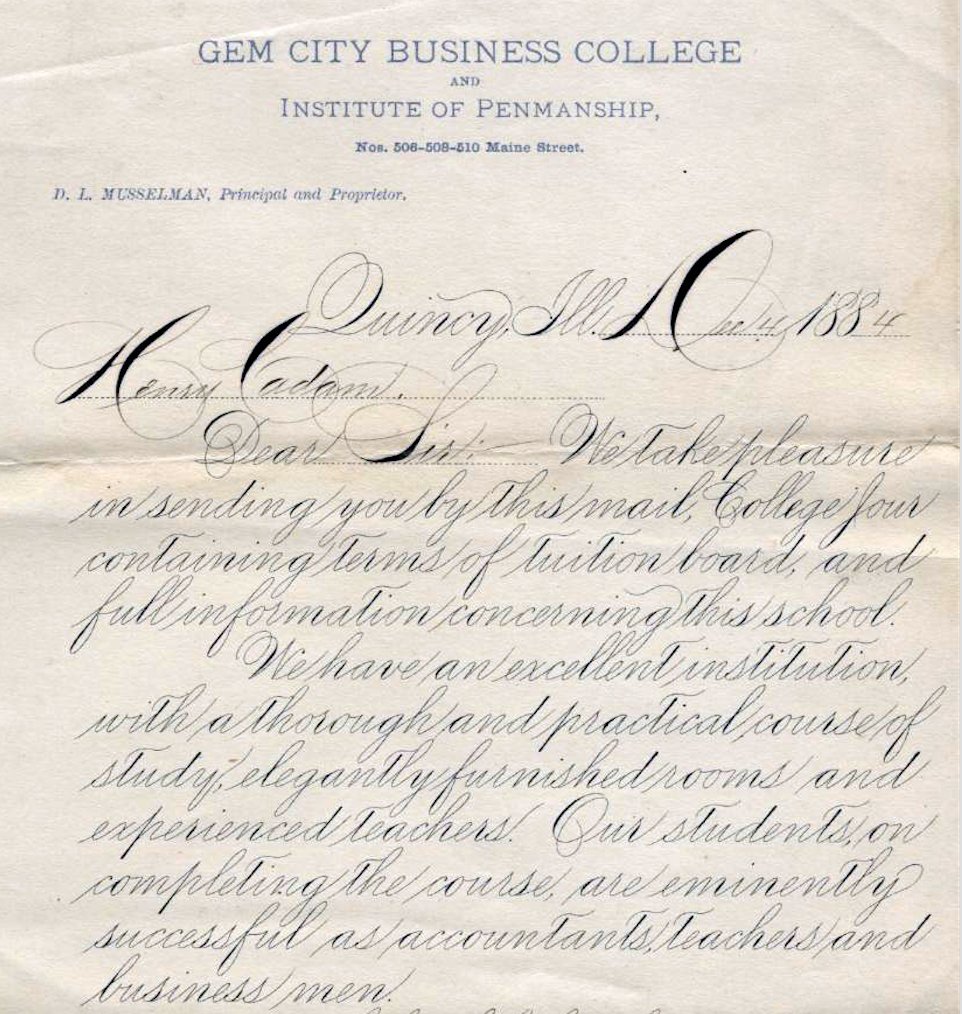 GEM CITY BUSINESS COLLEGE
AND
INSTITUTE OF PENMANSHIP,
Nos. 506-508-510 Maine Street.
D. L. MUSSELMAN, Principal and Proprietor.
Quincy, Ill. Dec 4, 1884
Henry Cadam.
Dear Sir:— We take pleasure
in sending you by this mail, College Jour
containing terms of tuition board, and
full information concerning this school.
We have an excellent institution,
with a thorough and practical course of
study, elegantly furnished rooms and
experienced teachers. Our students, on
completing the course, are eminently
successful as accountants, teachers and
business men.